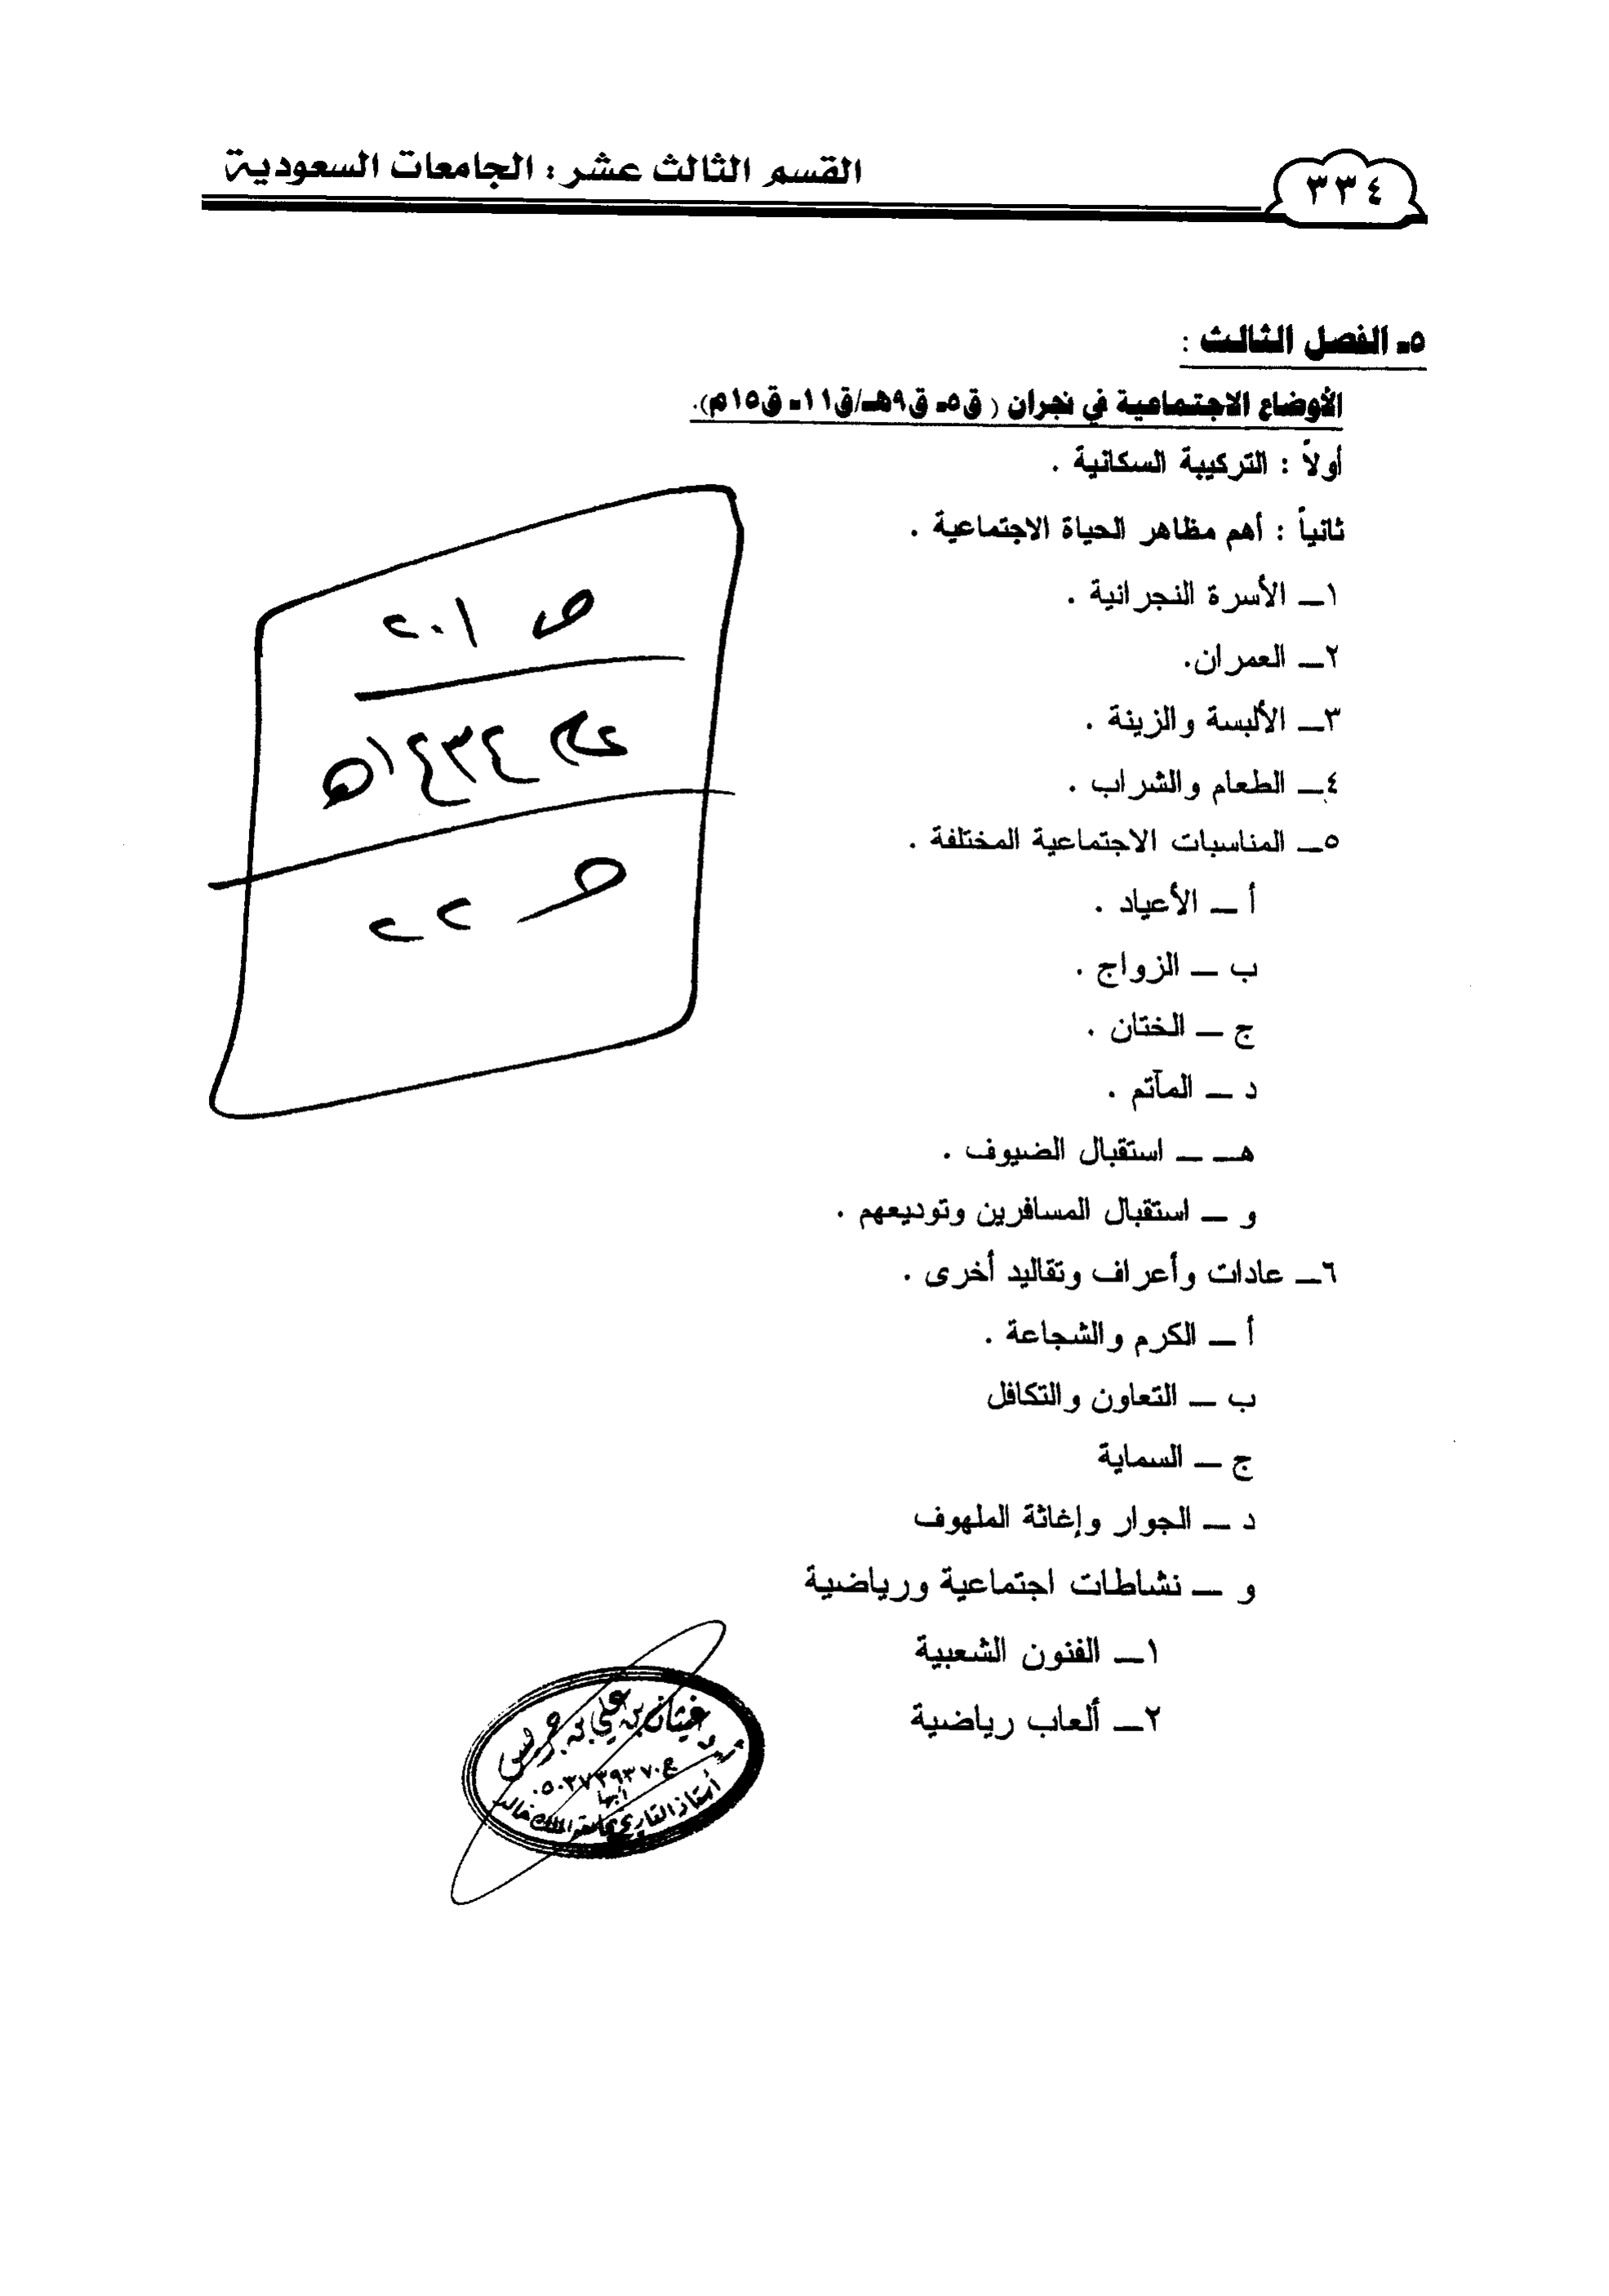 ٣٣٤
القسم الثالث عشر: الجامعات السعودية
٥ـ الفصل الثالث :
الأوضاع الاجتماعية في نجران ( ق٥ـ ق٩هـ/ق١١ـ ق١٥م).
أولاً : التركيبة السكانية .
ثانياً : أهم مظاهر الحياة الاجتماعية .
١ــ الأسرة النجرانية .
٢ــ العمران.
٣ــ الألبسة والزينة .
٤ــ الطعام والشراب .
٥ــ المناسبات الاجتماعية المختلفة .
أ ــ الأعياد .
ب ــ الزواج .
ج ــ الختان .
د ــ المآتم .
هــ ــ استقبال الضيوف .
و ــ استقبال المسافرين وتوديعهم .
٦ــ عادات وأعراف وتقاليد أخرى .
أ ــ الكرم والشجاعة .
ب ــ التعاون والتكافل
ج ــ السماية
د ــ الجوار وإغاثة الملهوف
و ــ نشاطات اجتماعية ورياضية
١ــ الفنون الشعبية
٢ــ ألعاب رياضية
ص ٢٠١
١٤٣٤هـ
٢٢
غيثان بن علي بن جريس
٠٥٠٣٧٣٩٣٧٠
أبها
أستاذ التاريخ بجامعة الملك خالد